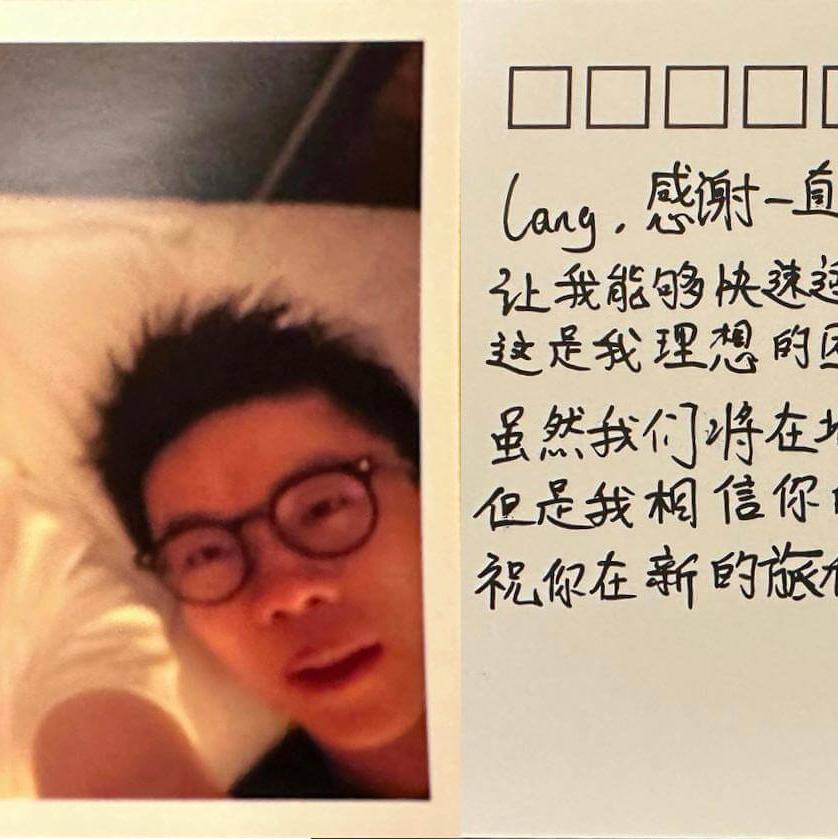 Lang，感谢一直
让我能够快速适
这是我理想的团
虽然我们将在
但是我相信你
祝你在新的旅